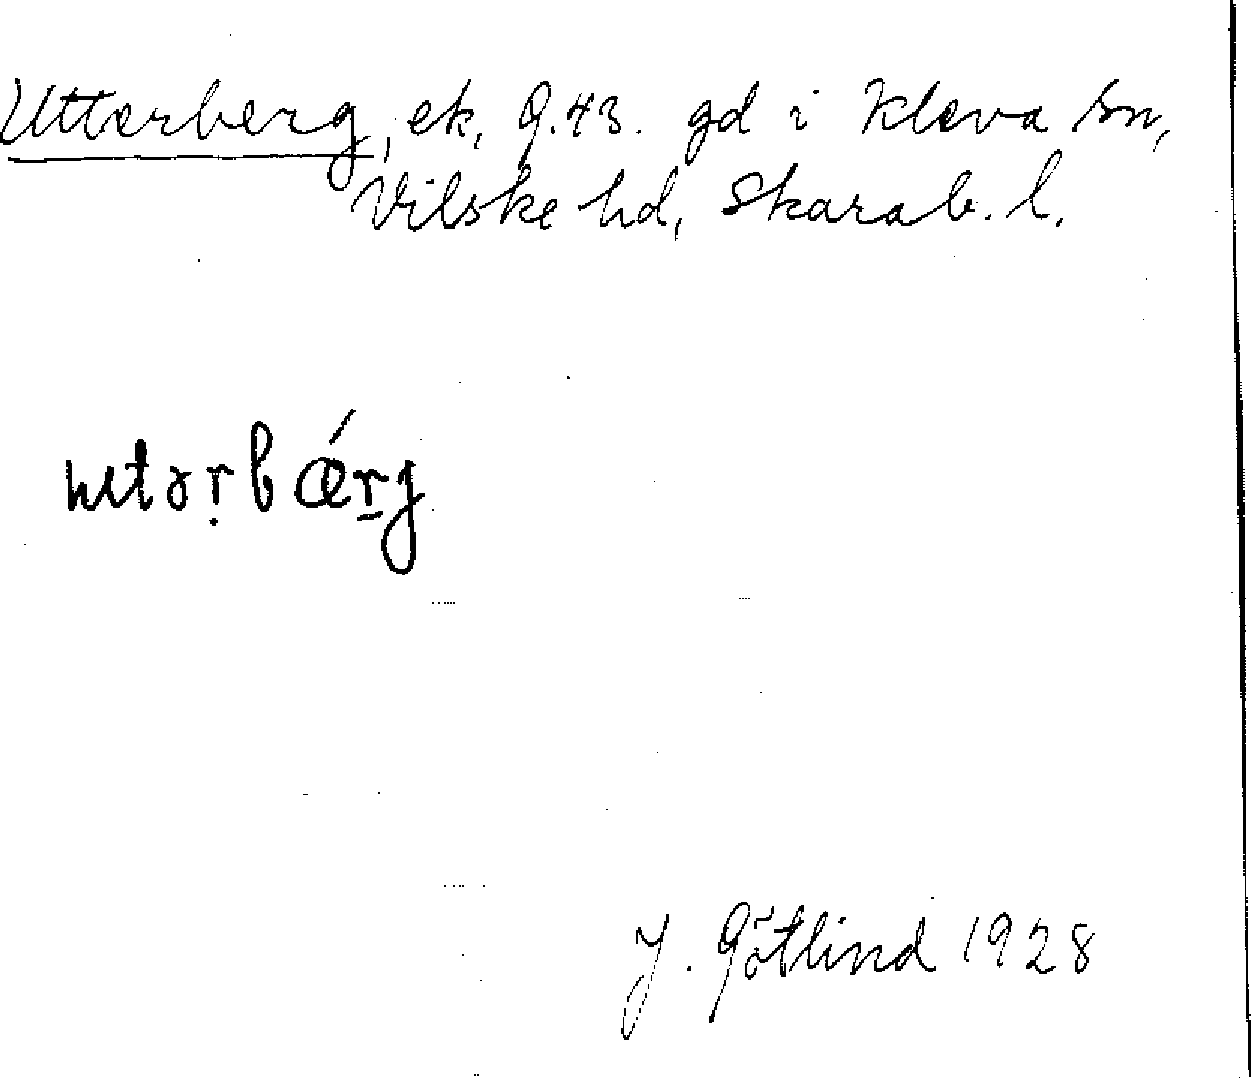 Utterberg, ek, 9.43. gd i Kleva sn,
Vilske hd, Skarab. l.
utərbǽrg
J. Götlind 1928